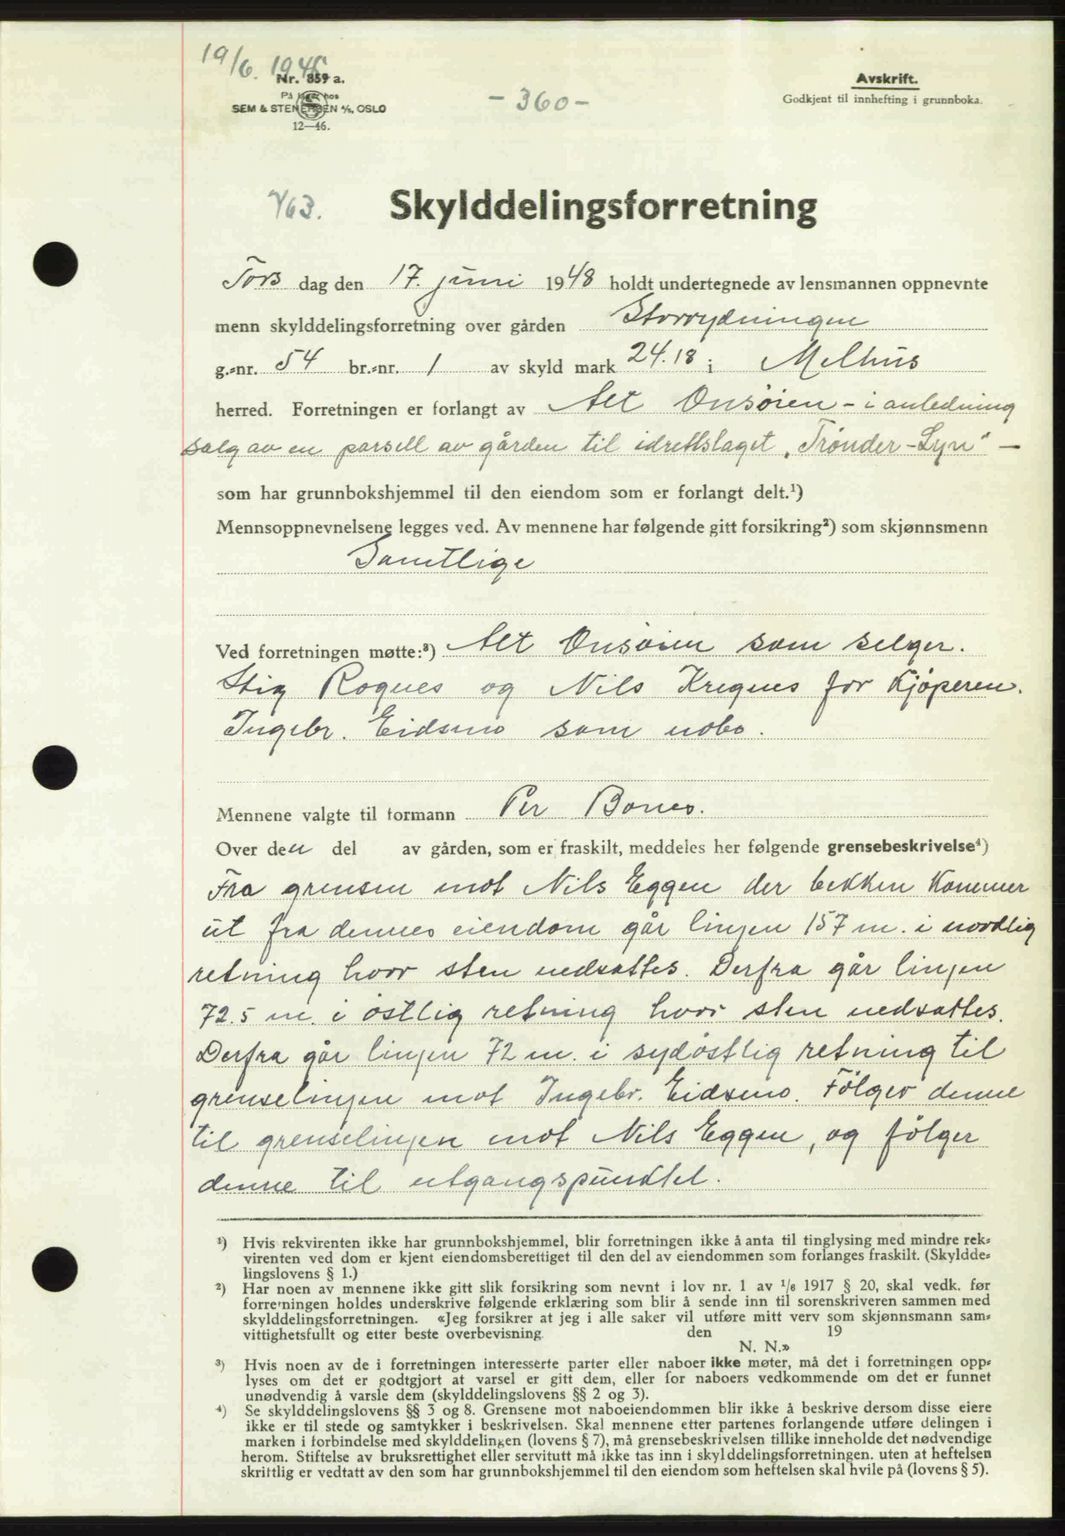 19/6. 1948
Nr. 859 a.
På lager hos
SEM & STENERSEN A/S, OSLO
12—46.
- 360 -
Avskrift.
Godkjent til innhefting i grunnboka.
763.
Skylddelingsforretning
Tors dag den 17. juni 1948 holdt undertegnede av lensmannen oppnevnte
menn skylddelingsforretning over gården Storrydningen
g.-nr. 54 br.-nr. 1 av skyld mark 24.18 i Melhus
herred. Forretningen er forlangt av Alt Onsøien - i anledning
salg av en parsell av gården til idrettslaget „Trønder-Lyn" —
som har grunnbokshjemmel til den eiendom som er forlangt delt.¹)
Mennsoppnevnelsene legges ved. Av mennene har følgende gitt forsikring²) som skjønnsmenn
Samtlige
Ved forretningen møtte:³) Alt Onsøien som selger.
Stig Rognes og Nils Kregnes for kjøperen.
Ingebr. Eidsmo som nabo.
Mennene valgte til formann Per Bones.
Over den del av gården, som er fraskilt, meddeles her følgende grensebeskrivelse⁴)
Fra grensen mot Nils Eggen der bekken kommer
ut fra dennes eiendom går linjen 157 m. i nordlig
retning hvor sten nedsattes. Derfra går linjen
72.5 m. i østlig retning hvor sten nedsattes.
Derfra går linjen 72 m. i sydøstlig retning til
grenselinjen mot Ingebr. Eidsmo. Følger denne
til grenselinjen mot Nils Eggen, og følger
denne til utgangspunktet.
¹) Hvis rekvirenten ikke har grunnbokshjemmel, blir forretningen ikke å anta til tinglysing med mindre rek-
virenten ved dom er kjent eiendomsberettiget til den del av eiendommen som forlanges fraskilt. (Skyldde-
lingslovens § 1.)
²) Har noen av mennene ikke gitt slik forsikring som nevnt i lov nr. 1 av 1/6 1917 § 20, skal vedk. før
forretningen holdes underskrive følgende erklæring som blir å sende inn til sorenskriveren sammen med
skylddelingsforretningen. «Jeg forsikrer at jeg i alle saker vil utføre mitt verv som skjønnsmann sam-
vittighetsfullt og etter beste overbevisning. den 19
N. N.»
³) Hvis noen av de i forretningen interesserte parter eller naboer ikke møter, må det i forretningen opp-
lyses om det er godtgjort at varsel er gitt dem, eller for naboers vedkommende om det er funnet
unødvendig å varsle dem (skylddelingslovens §§ 2 og 3).
⁴) Se skylddelingslovens §§ 3 og 8. Grensene mot naboeiendommen blir ikke å beskrive dersom disse eiere
ikke er til stede og samtykker i beskrivelsen. Skal mennene etter partenes forlangende utføre delingen i
marken i forbindelse med skylddelingen (lovens § 7), må grensebeskrivelsen tillike inneholde det nødvendige
herom. Stiftelse av bruksrettighet eller servitutt må ikke tas inn i skylddelingsforretningen, uten at heftelsen
skriftlig er vedtatt av den som har grunnbokshjemmel til den eiendom som heftelsen skal hvile på (lovens § 5).